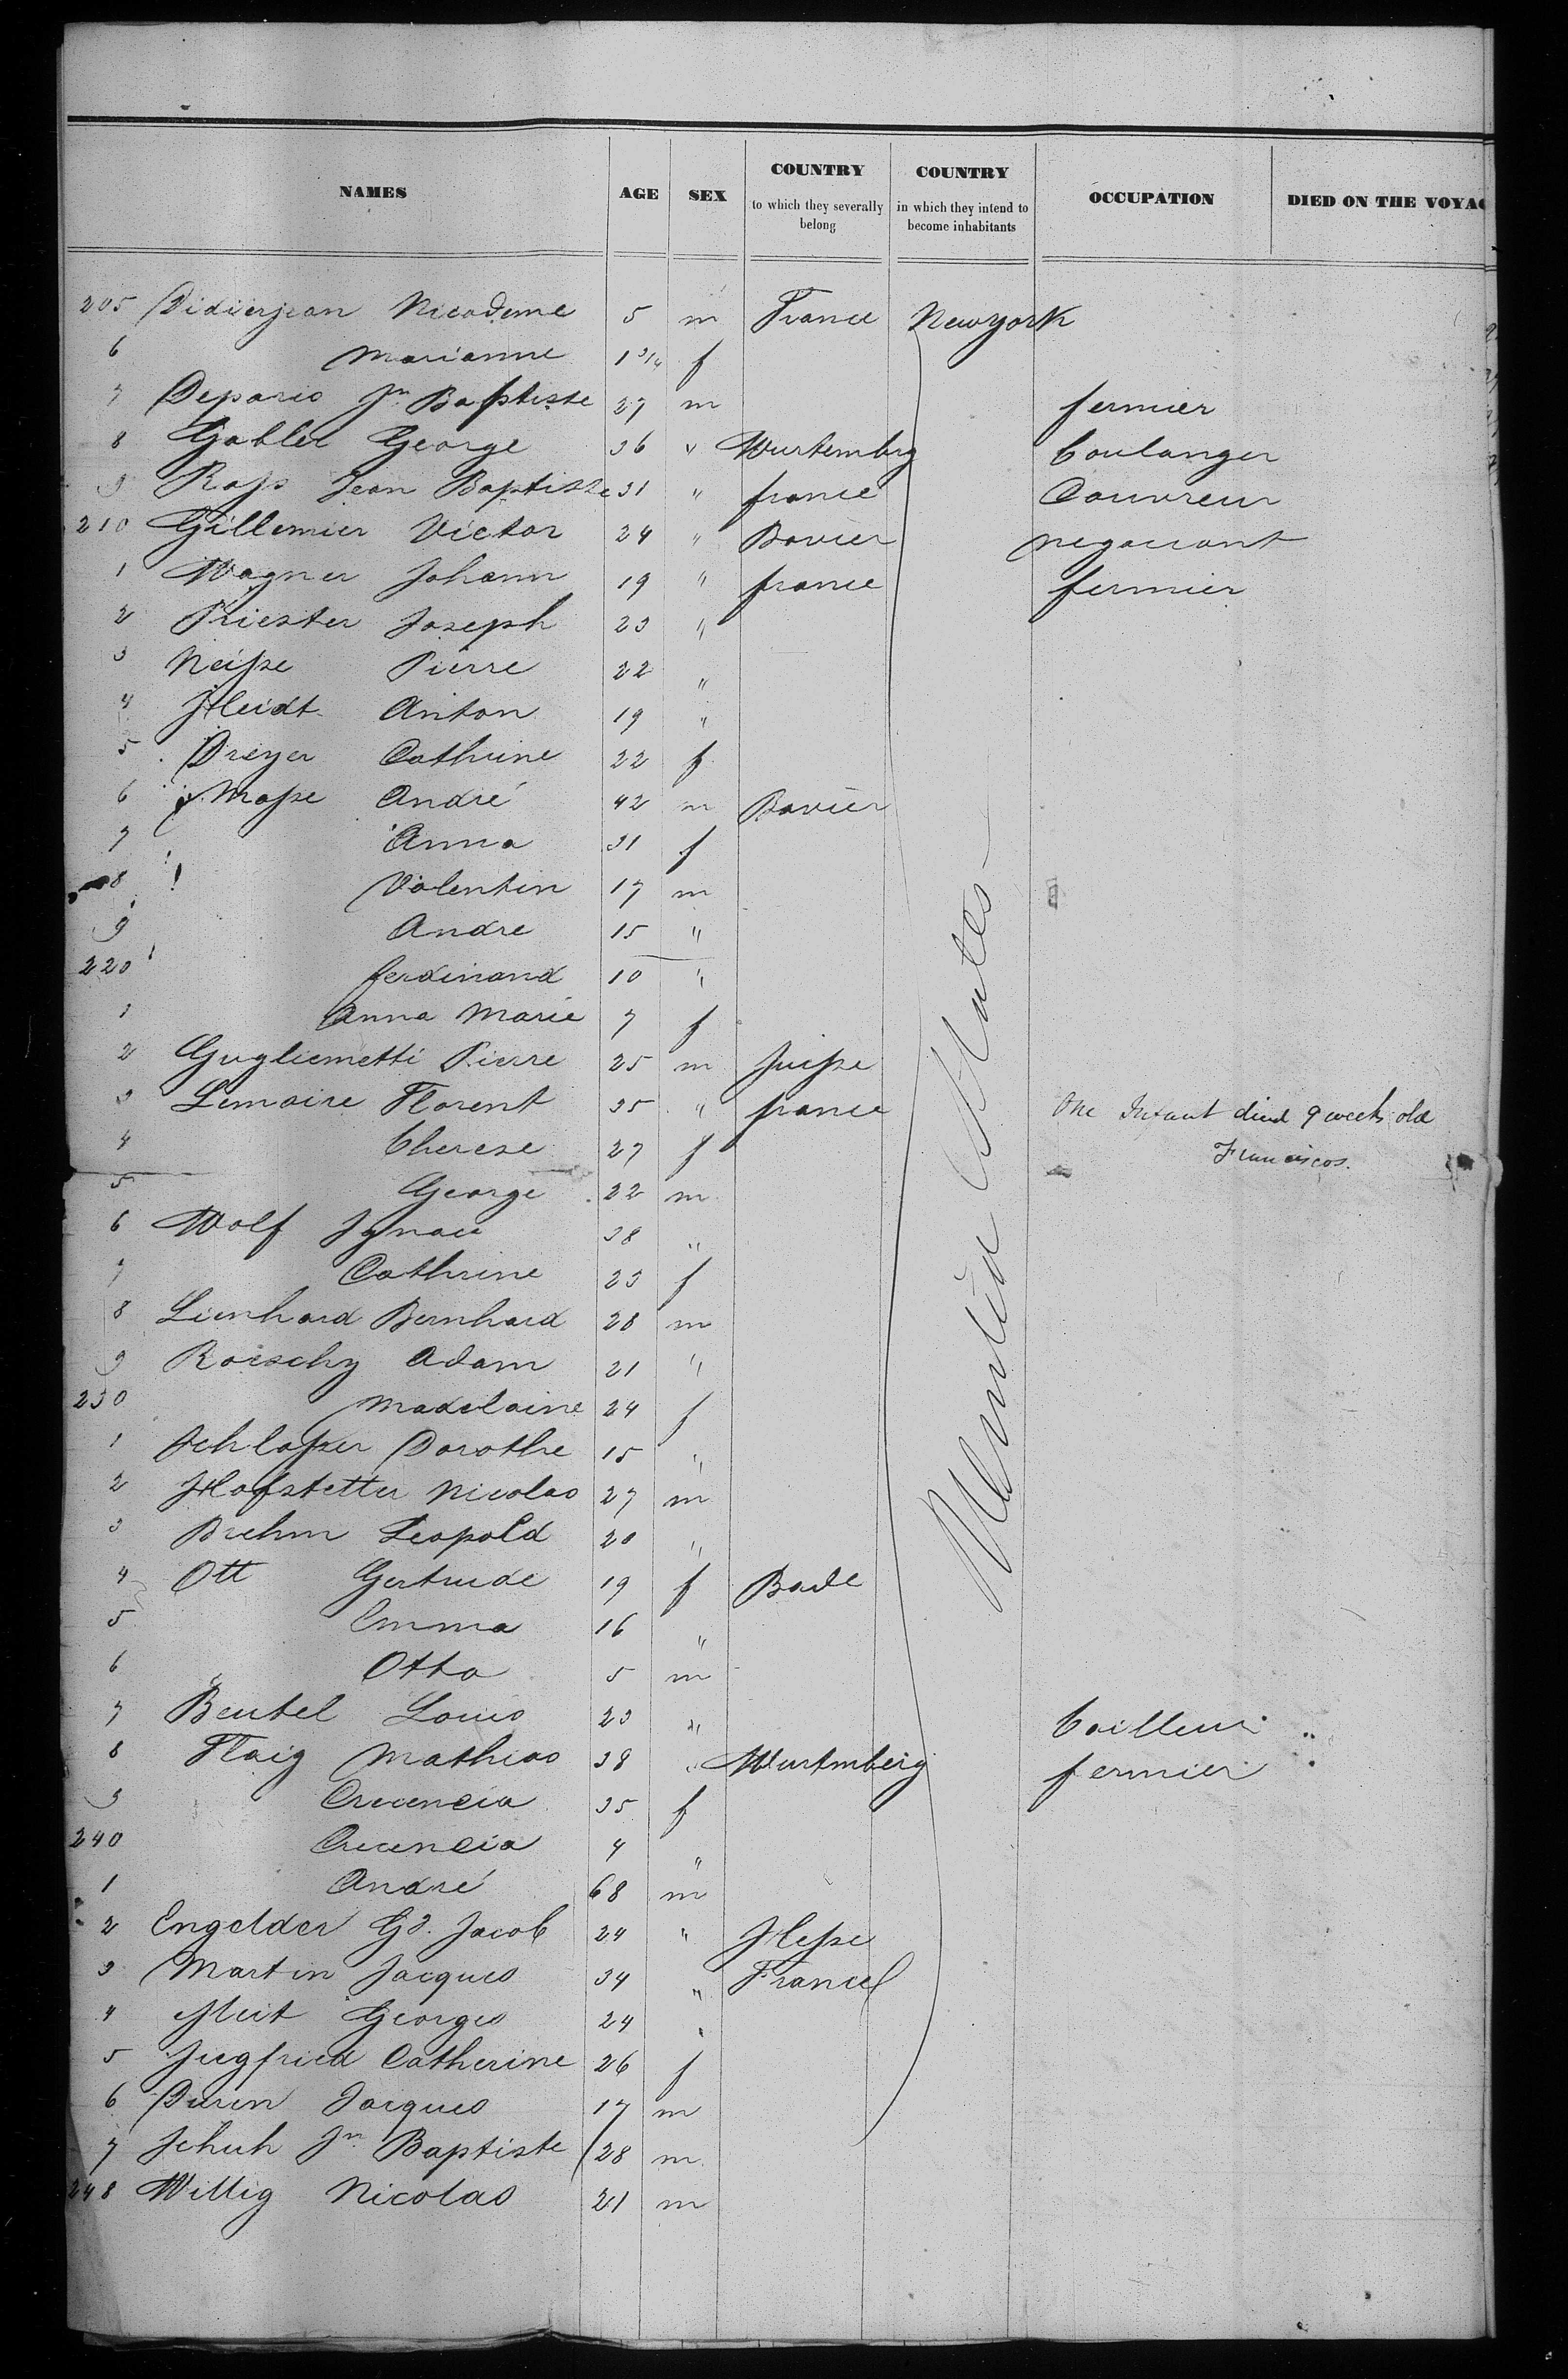 NAMES AGE SEX COUNTRY to which they severally belong COUNTRY in which they intend to become inhabitants OCCUPATION DIED ON THE VOYAG
205 Didierjean Nicodeme 5 m France Newyork
6 Marianne 1 3/4 f
7 Deparis Jn Baptiste 27 m fermier
8 Gabler George 36 " Wurtembrg boulanger
9 Rass Jean Baptiste 31 " france Couvreur
210 Gillemier Victor 24 " Bavier negociant
1 Wagner Johann 19 " france fermier
2 Priester Joseph 23 "
3 Neisse Pierre 22 "
4 Heidt Anton 19 "
5 Dreyer Cathrine 22 f
6 Masse André 42 m Bavier
7 Anna 31 f
8 Valentin 17 m
9 Andre 15 "
220 ferdinand 10 "
1 Anna Marie 7 f
2 Gugliemetti Pierre 25 m Suisse
3 Lemoire Florent 35 " france One Infant died 9 weeks old
4 Therese 27 f Franciscos.
5 George 22 m
6 Wolf Ignace 38 "
7 Cathrine 23 f
8 Lienhard Bernhard 28 m
9 Roischy Adam 21 "
230 Madelaine 24 f
1 Schlosser Dorothe 15 "
2 Hofstetter Nicolas 27 m
3 Brehm Leopold 20 "
4 Ott Gertrude 19 f Bade
5 Emma 16 "
6 Otto 5 m
7 Beutel Louis 23 " tailleur
8 Flaig Mathias 38 " Wurtmberg fermier
9 Crecencia 35 f
240 Crecencia 4 "
1 André 68 m
2 Engelder Gd. Jacob 24 " Hesse
3 Martin Jacques 34 " France
4 Meit Georges 24 "
5 Siegfried Catherine 26 f
6 Duren Jacques 17 m
7 Schuh Jn Baptiste 28 m
248 Willig Nicolas 21 m